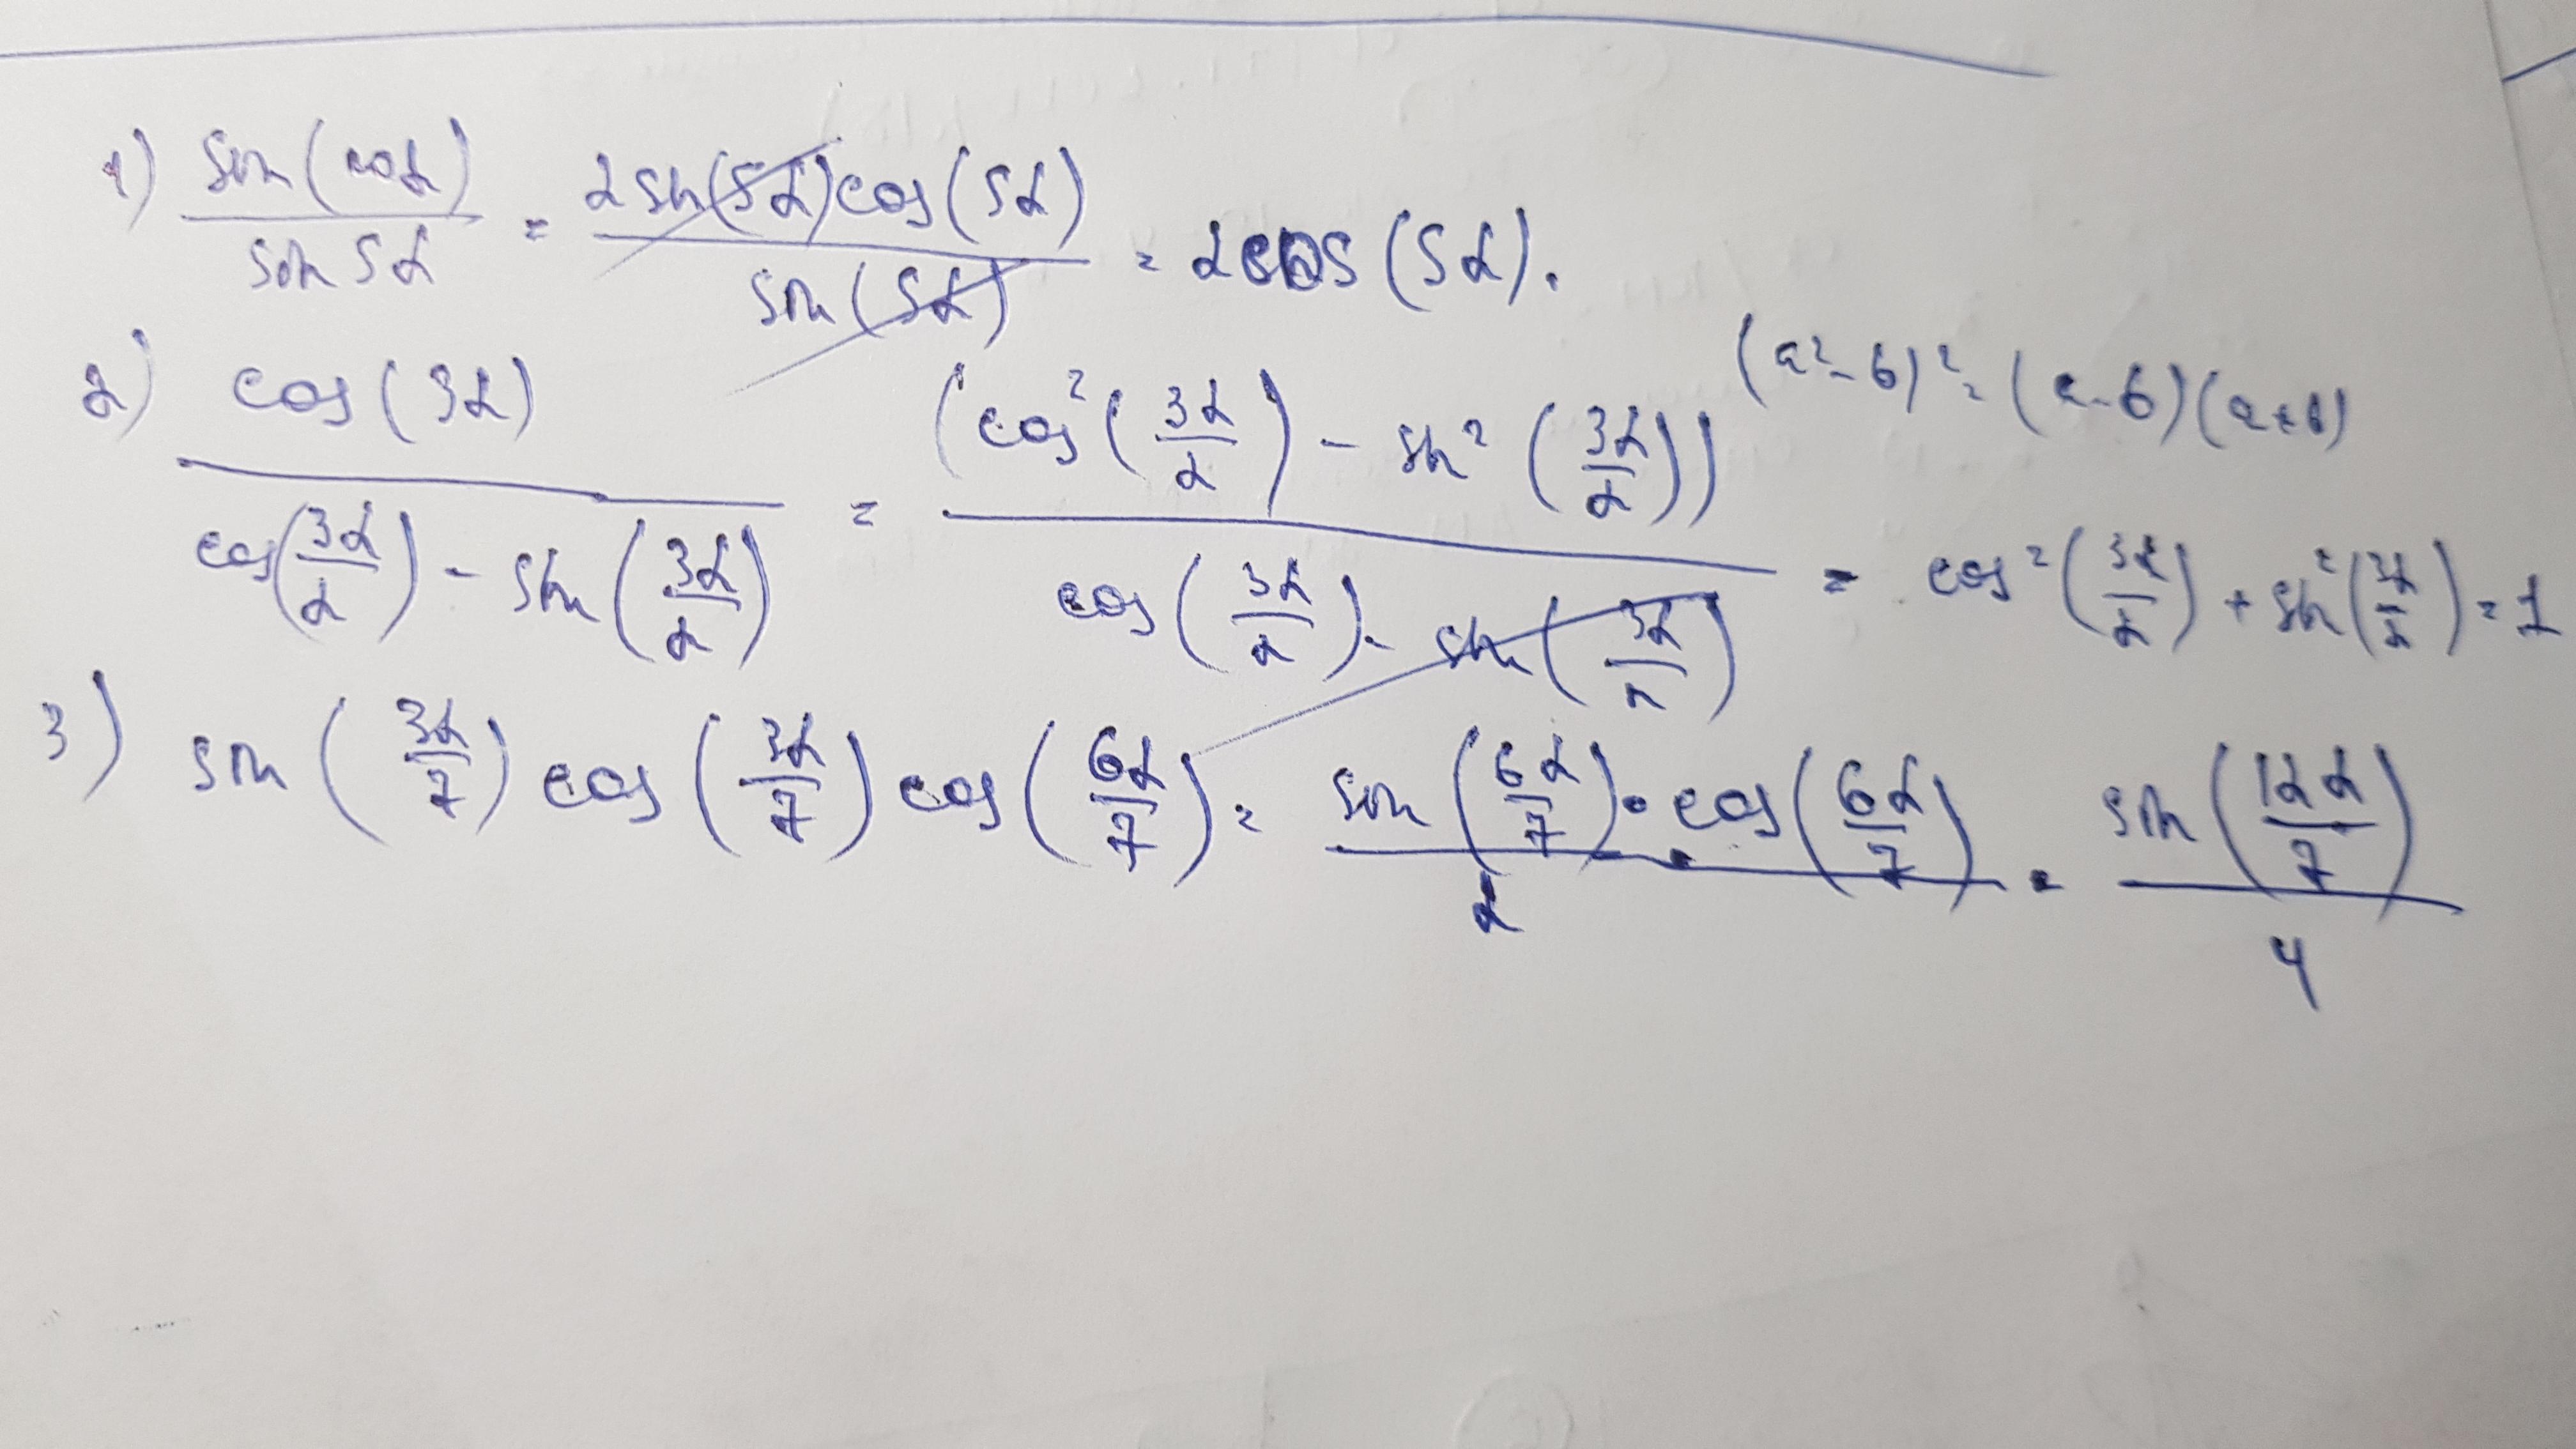 1) sin(10α)/sin 5α = 2sin(5α)cos(5α)/sin(5α) = 2cos(5α).
(a²-b)² = (a-b)(a+b)
2) cos(3α)/(cos(3α/2) - sin(3α/2)) = (cos²(3α/2) - sin²(3α/2))/(cos(3α/2) - sin(3α/2)) = cos²(3α/2) + sin²(3α/2) = 1
3) sin(3α/7) cos(3α/7) cos(6α/7) = sin(6α/7)·cos(6α/7)/2 = sin(12α/7)/4